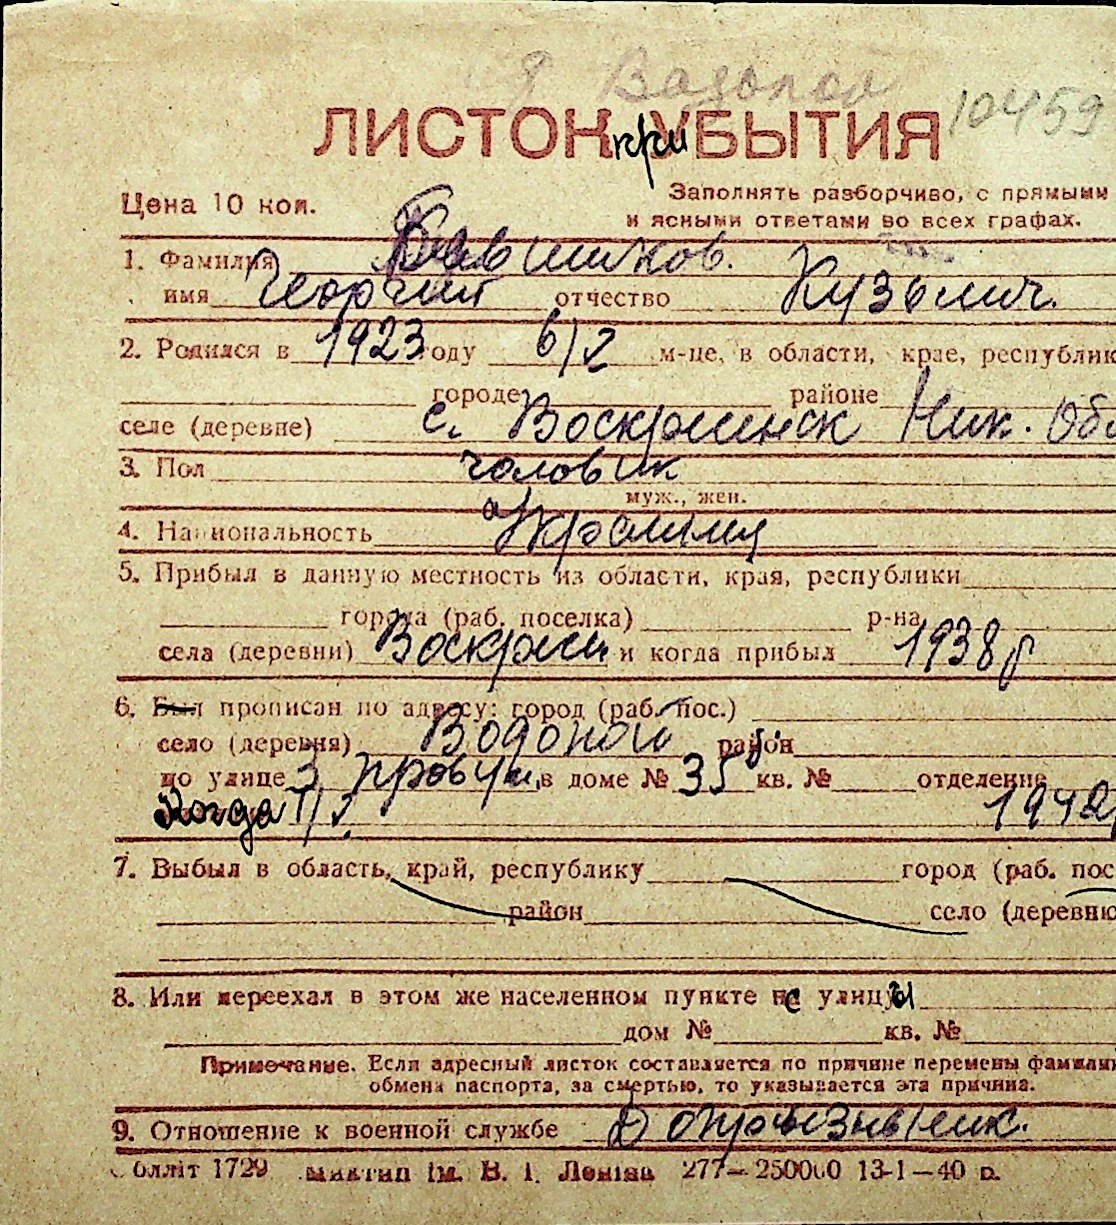 Водопой
10459
ЛИСТОК при УБЫТИЯ
Цена 10 коп.
Заполнять разборчиво, с прямыми
и ясными ответами во всех графах.
1. Фамилия
имя Георгий отчество Кузьмич.
2. Родился в 1923 году 6/V м-це, в области, крае, республик
городе районе
селе (деревне) с. Воскресенск Ник. Обл
3. Пол чоловик
муж., жен.
4. Национальность Украинец
5. Прибыл в данную местность из области, края, республики
города (раб. поселка) р-на
села (деревни) Воскресен и когда прибыл 1938 г
6. Был прописан по адресу: город (раб. пос.)
село (деревня) Водопой район
по улице 3 провул. в доме № 35 кв. № отделение
Когда 1942
7. Выбыл в область, край, республику город (раб. пос
район село (деревню
8. Или переехал в этом же населенном пункте с улицы
дом № кв. №
Примечание. Если адресный листок составляется по причине перемены фамилии
обмена паспорта, за смертью, то указывается эта причина.
9. Отношение к военной службе Допризывник.
Обліт 1729 Миктип ім. В. І. Леніна 277—250000 13-1—40 р.